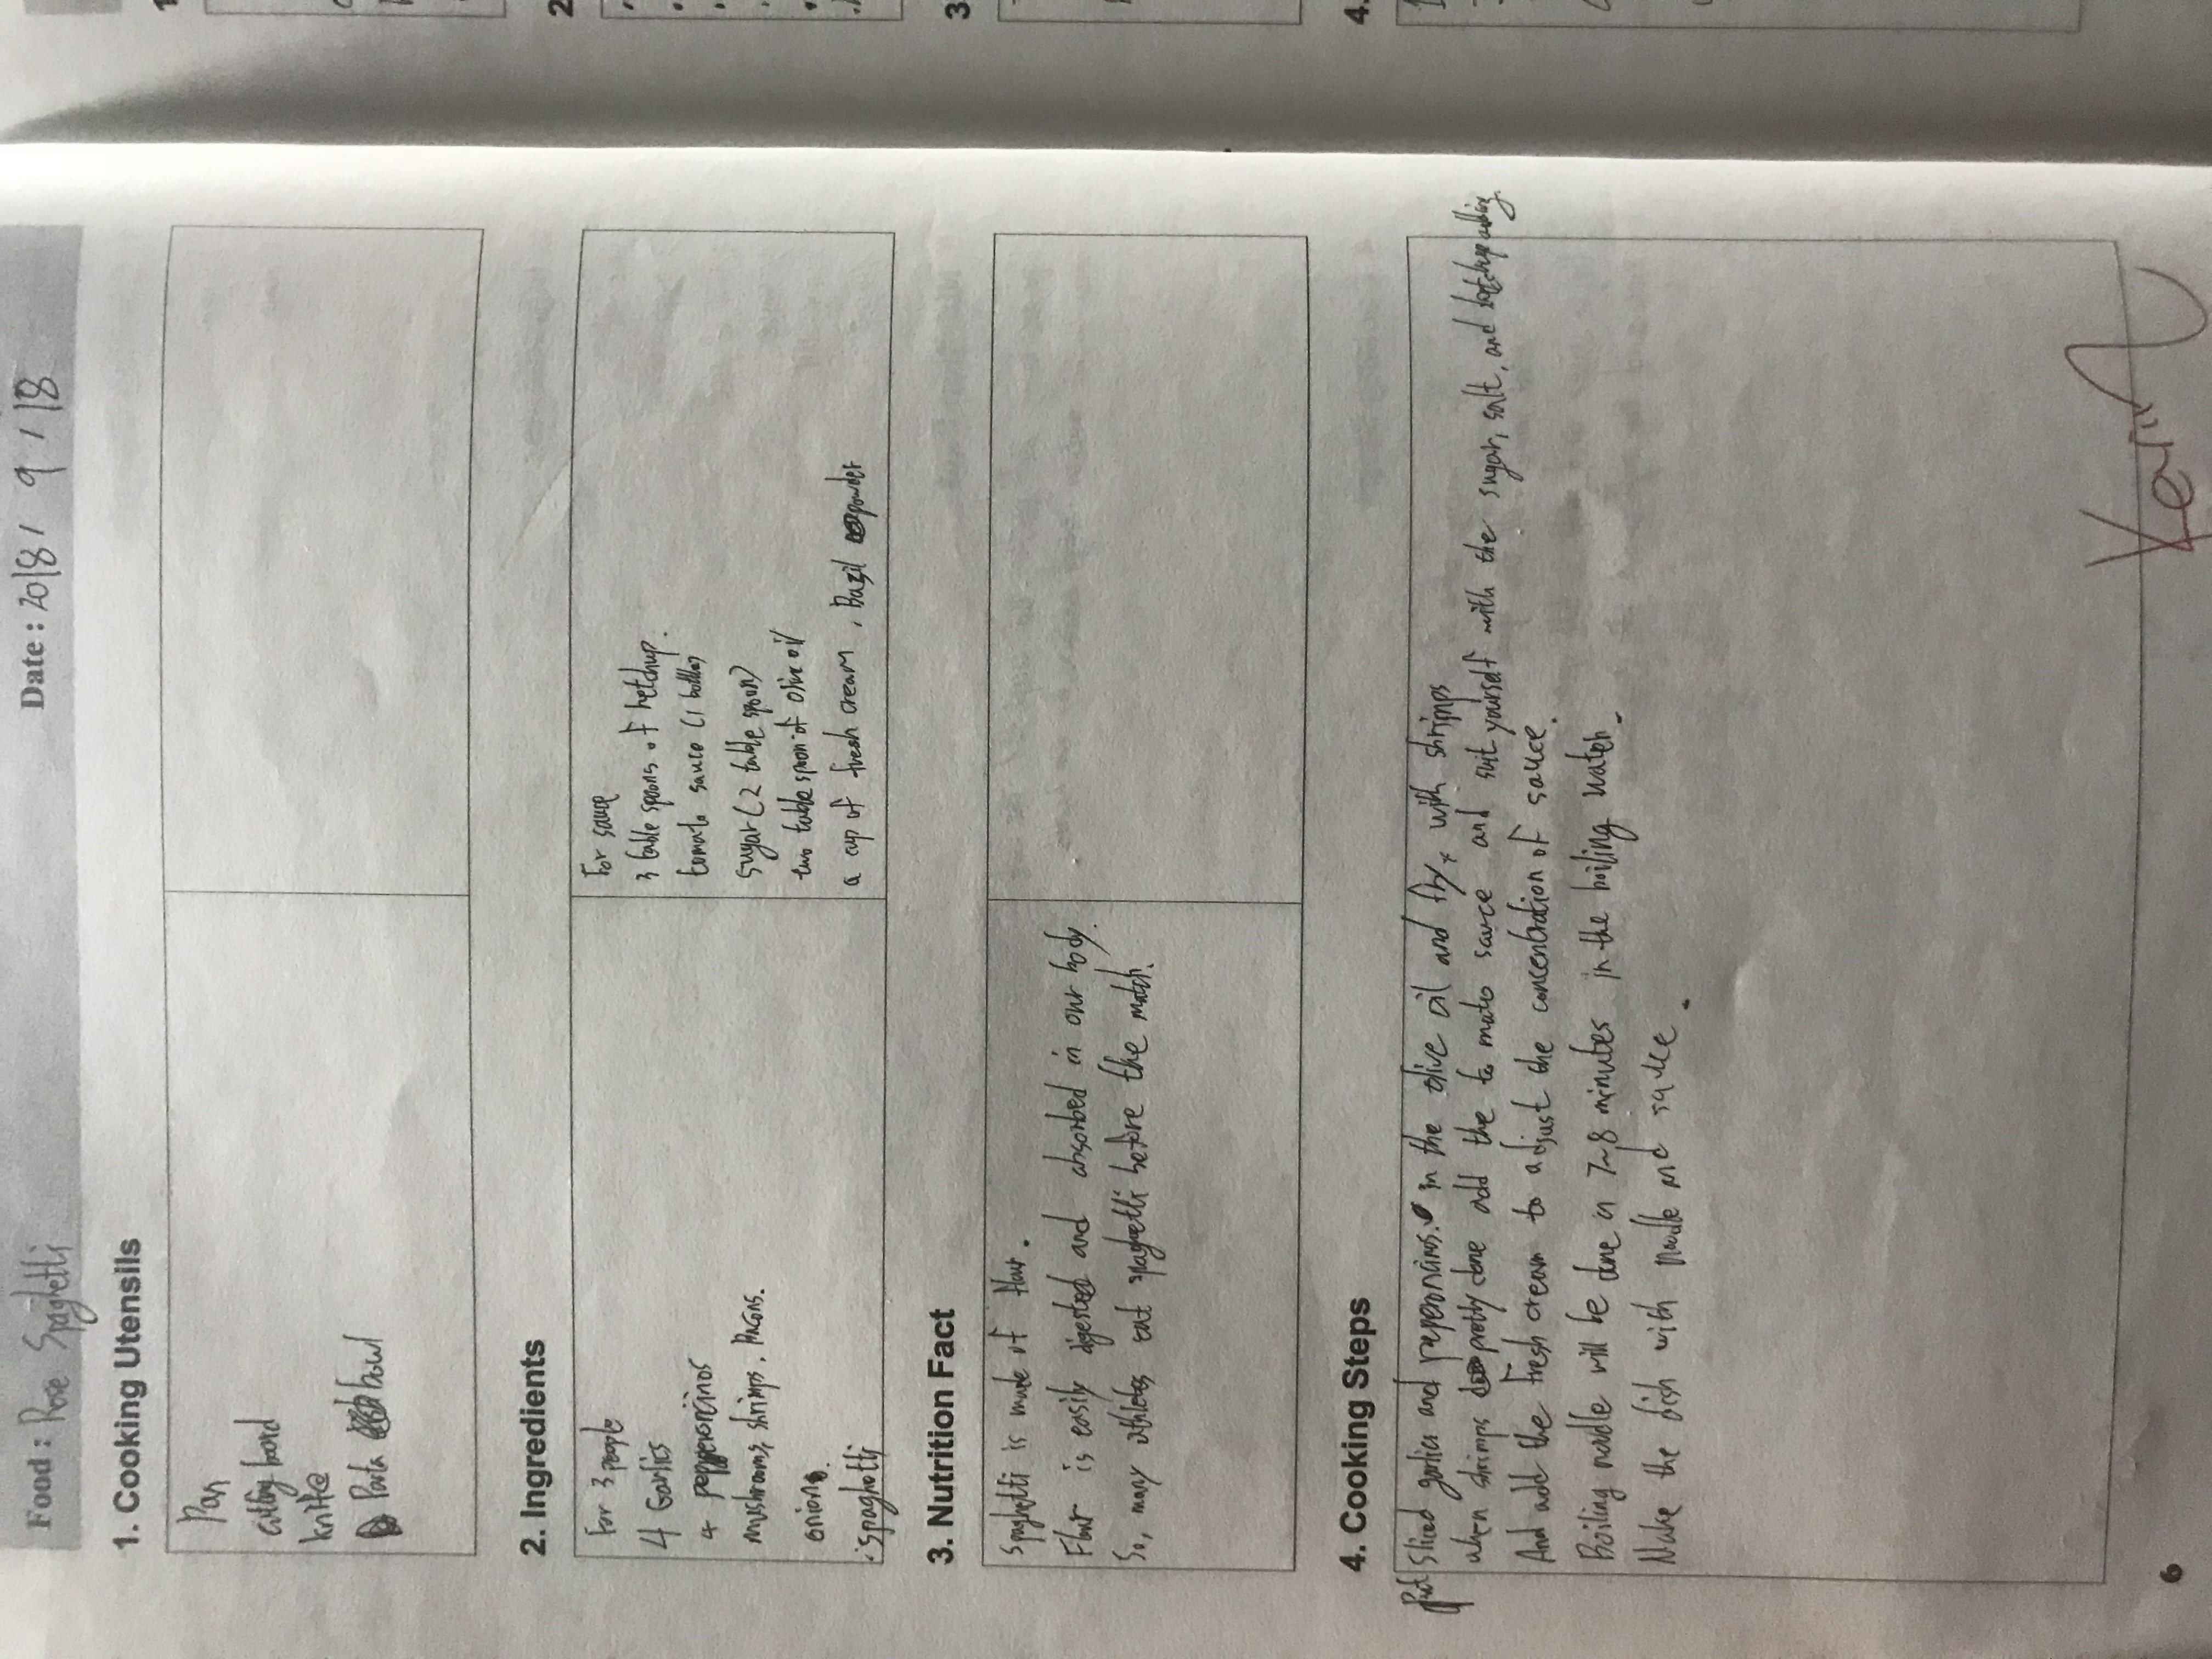 Food : Rose Spaghetti
Date : 2018 / 9 / 18
1. Cooking Utensils
Pan
cutting board
knife
Pasta bowl
2. Ingredients
For 3 people
4 Garlics
4 pepperoncinos
mushrooms, shrimps,
onions.
· Spaghetti
For sauce
3 table spoons of ketchup.
tomato sauce (1 bottle)
sugar (2 table spoon)
two table spoon of olive oil
a cup of fresh cream , Bazil powder
3. Nutrition Fact
Spaghetti is made of flour.
Flour is easily digested and absorbed in our body.
So, many athletes eat spaghetti before the match.
4. Cooking Steps
Put Sliced garlics and peperoncinos. in the olive oil and fry with shrimps
when shrimps pretty done add the to mato sauce and suit yourself with the sugar, salt, and ketchup adding.
And add the fresh cream to adjust the concentration of sauce.
Boiling noodle will be done in 7~8 minutes in the boiling water.
Make the dish with noodle and sauce.
6
2
3
4.